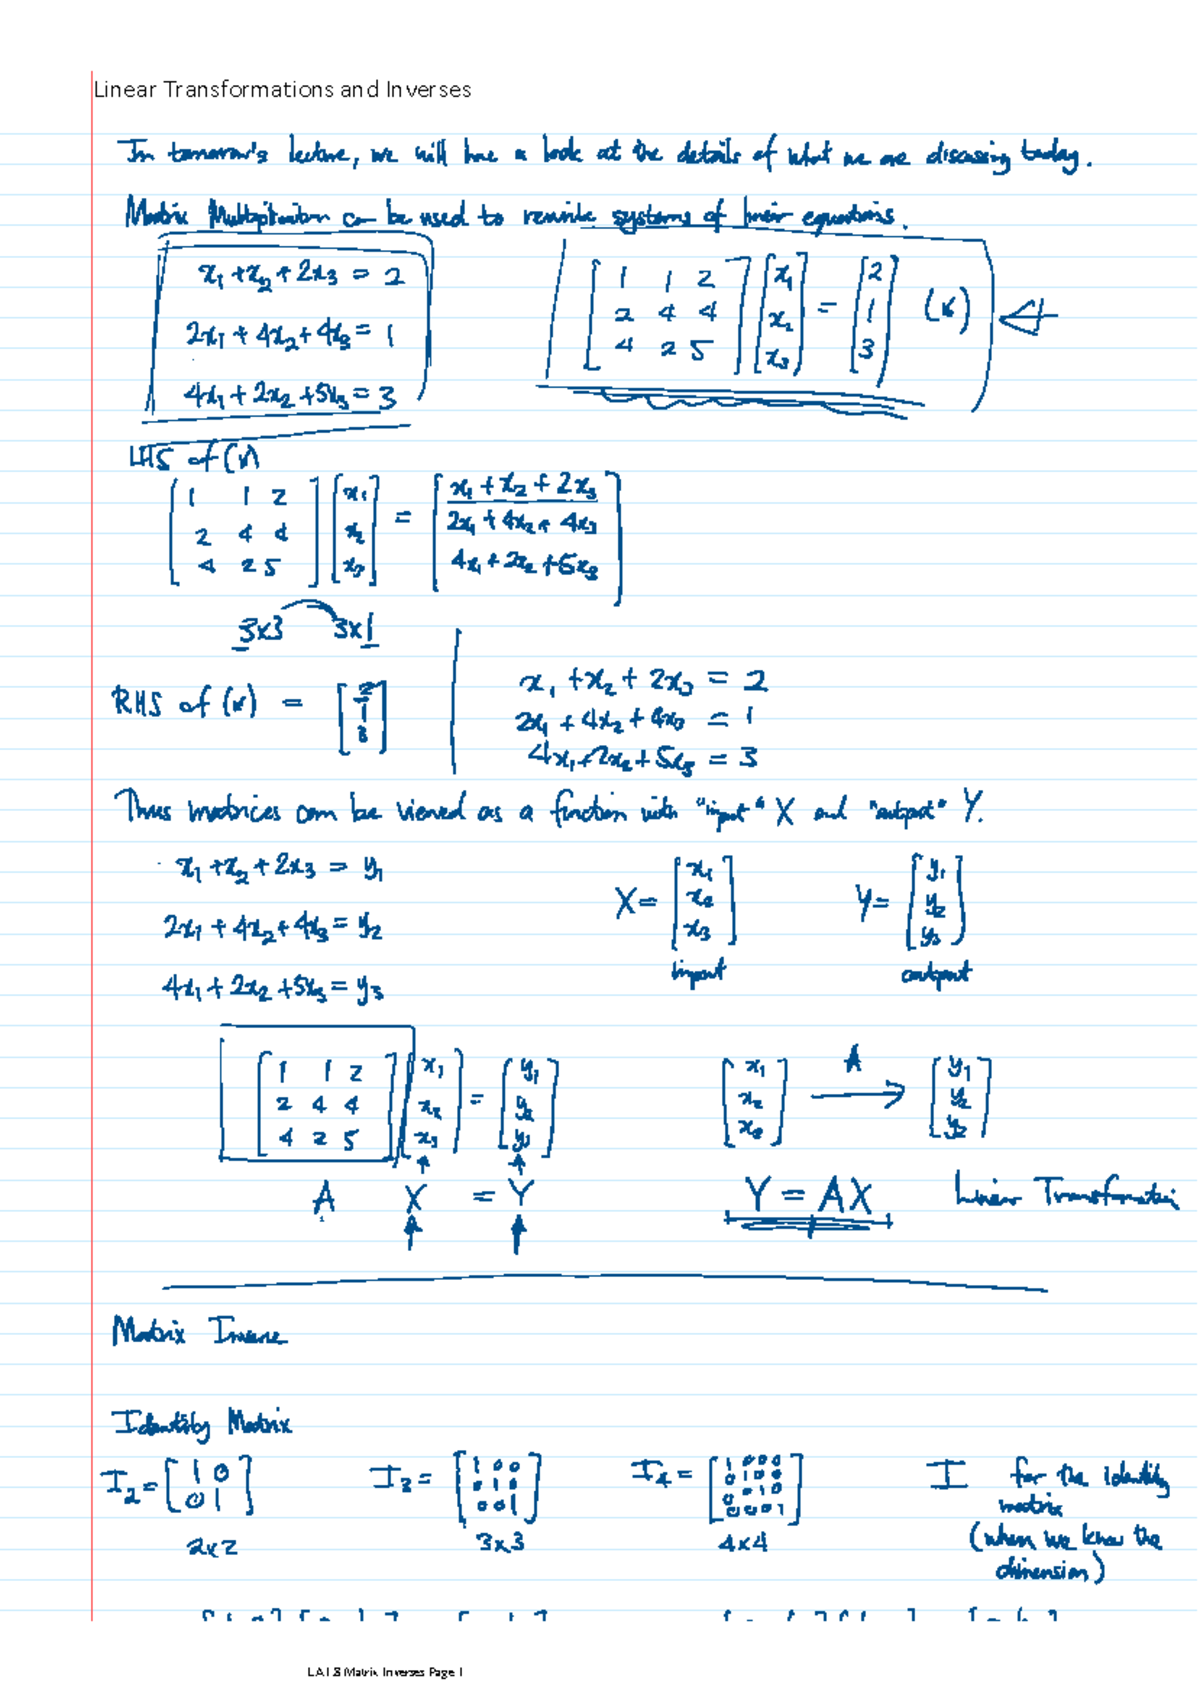 Linear Transformations and Inverses
In tomorrow's lecture, we will have a look at the details of what we are discussing today.
Matrix Multiplication can be used to rewrite systems of linear equations.
x₁ + x₂ + 2x₃ = 2
2x₁ + 4x₂ + 4x₃ = 1
4x₁ + 2x₂ + 5x₃ = 3
[1 1 2] [x₁] = [2]
[2 4 4] [x₂] = [1] (*)
[4 2 5] [x₃] = [3]
LHS of (*)
[1 1 2] [x₁] = [x₁ + x₂ + 2x₃]
[2 4 4] [x₂] = [2x₁ + 4x₂ + 4x₃]
[4 2 5] [x₃] = [4x₁ + 2x₂ + 5x₃]
3x3 3x1
RHS of (*) = [2 1 3]
x₁ + x₂ + 2x₃ = 2
2x₁ + 4x₂ + 4x₃ = 1
4x₁ + 2x₂ + 5x₃ = 3
Thus matrices can be viewed as a function with "input" X and "output" Y.
x₁ + x₂ + 2x₃ = y₁
2x₁ + 4x₂ + 4x₃ = y₂
4x₁ + 2x₂ + 5x₃ = y₃
X = [x₁ x₂ x₃] Y = [y₁ y₂ y₃]
input output
[1 1 2] [x₁] = [y₁]
[2 4 4] [x₂] = [y₂]
[4 2 5] [x₃] = [y₃]
A X = Y
[x₁ x₂ x₃] A → [y₁ y₂ y₃]
Y = AX Linear Transformation
Matrix Inverse
Identity Matrix
I₂ = [1 0; 0 1] I₃ = [1 0 0; 0 1 0; 0 0 1] I₄ = [1 0 0 0; 0 1 0 0; 0 0 1 0; 0 0 0 1] I for the identity
matrix
2x2 3x3 4x4 (when we know the
dimension)
LA1.8 Matrix Inverses Page 1